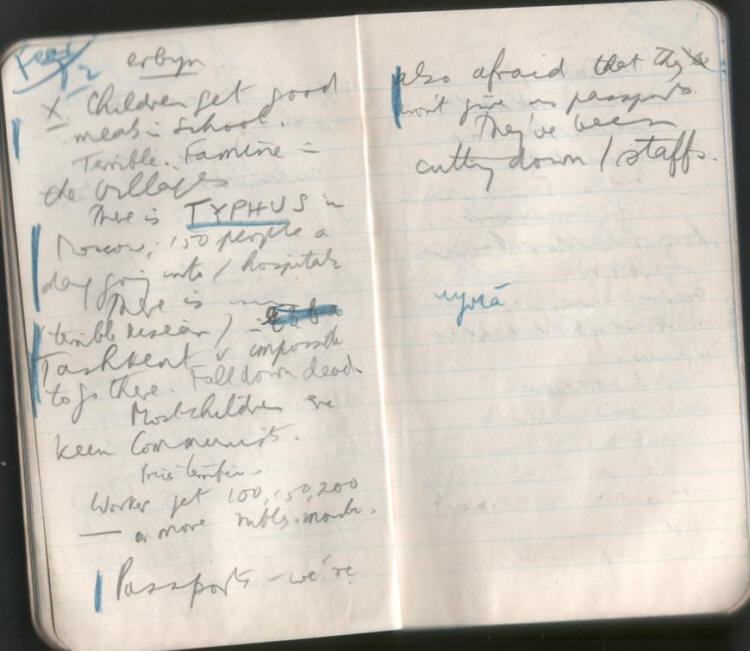 erbyn
X Children get good
meals in school.
Terrible. Famine in
the villages
There is TYPHUS in
Moscow; 150 people a
day going into / hospitals
There is
terrible
Tashkent & impossible
to go there. Fall down dead.
Most children are
keen Communists.
Worker get 100, 150, 200
— or more rubls. month.
Passports - we're
also afraid that they
won't give us passports.
They've been
cutting down / staffs.